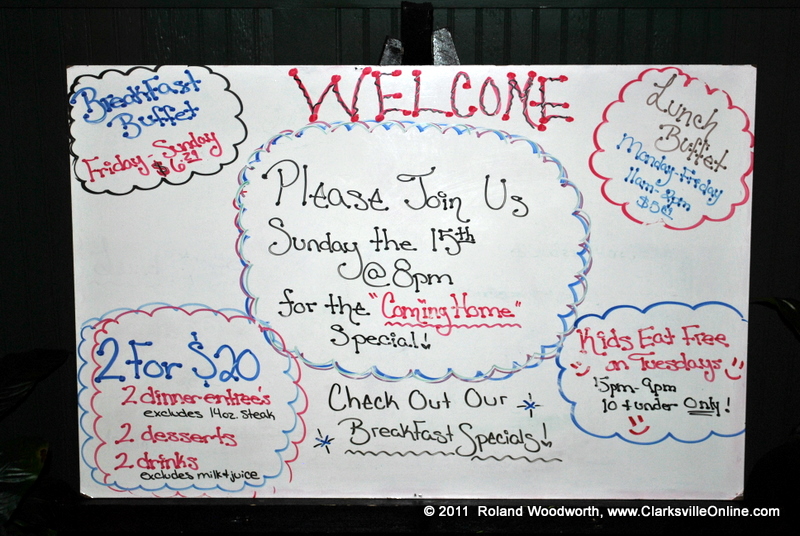 WELCOME
Breakfast
Buffet
Friday - Sunday
Lunch
Buffet
Monday-Friday
Please Join Us
Sunday the 15th
@ 8pm
for the "Coming Home"
Special!
2 For $20
2 dinner entree's
excludes 14oz. steak
2 desserts
2 drinks
excludes milk & juice
Check Out Our
Breakfast Specials!
Kids Eat Free
on Tuesdays
5pm-9pm
10 & under Only!
© 2011 Roland Woodworth, www.ClarksvilleOnline.com